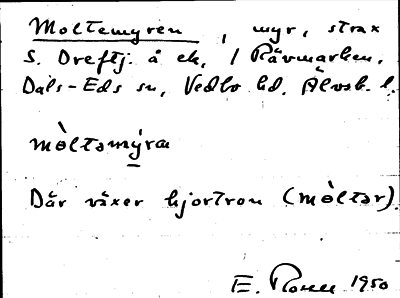 Moltemyren, myr, strax
S. Dreftj. å ek, / Rävmarken,
Dals-Eds sn, Vedbo hd. Älvsb. l.
mòltəmýra
Där växer hjortron (mòltər).
E. Rosell 1950